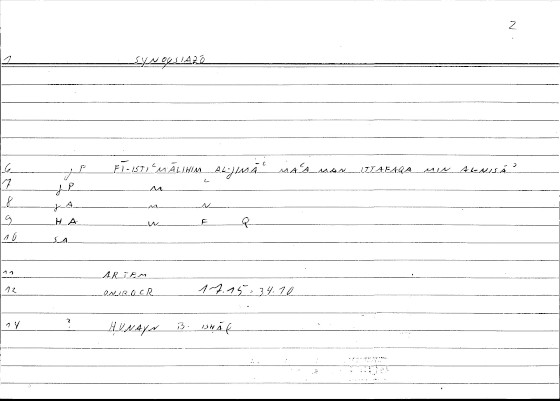 2
1 SYNOUSIAZO
6 jP FĪ-ISTIʿMĀLIHIM AL-JIMĀʿ MAʿA MAN ITTAFAQA MIN AL-NISĀʾ
7 jP M L
8 jA M N
9 HA W F Q
10 SA
11 ARTEM
12 ONIROCR 17.15-34.10
14 ? HUNAYN B. ISḤĀQ